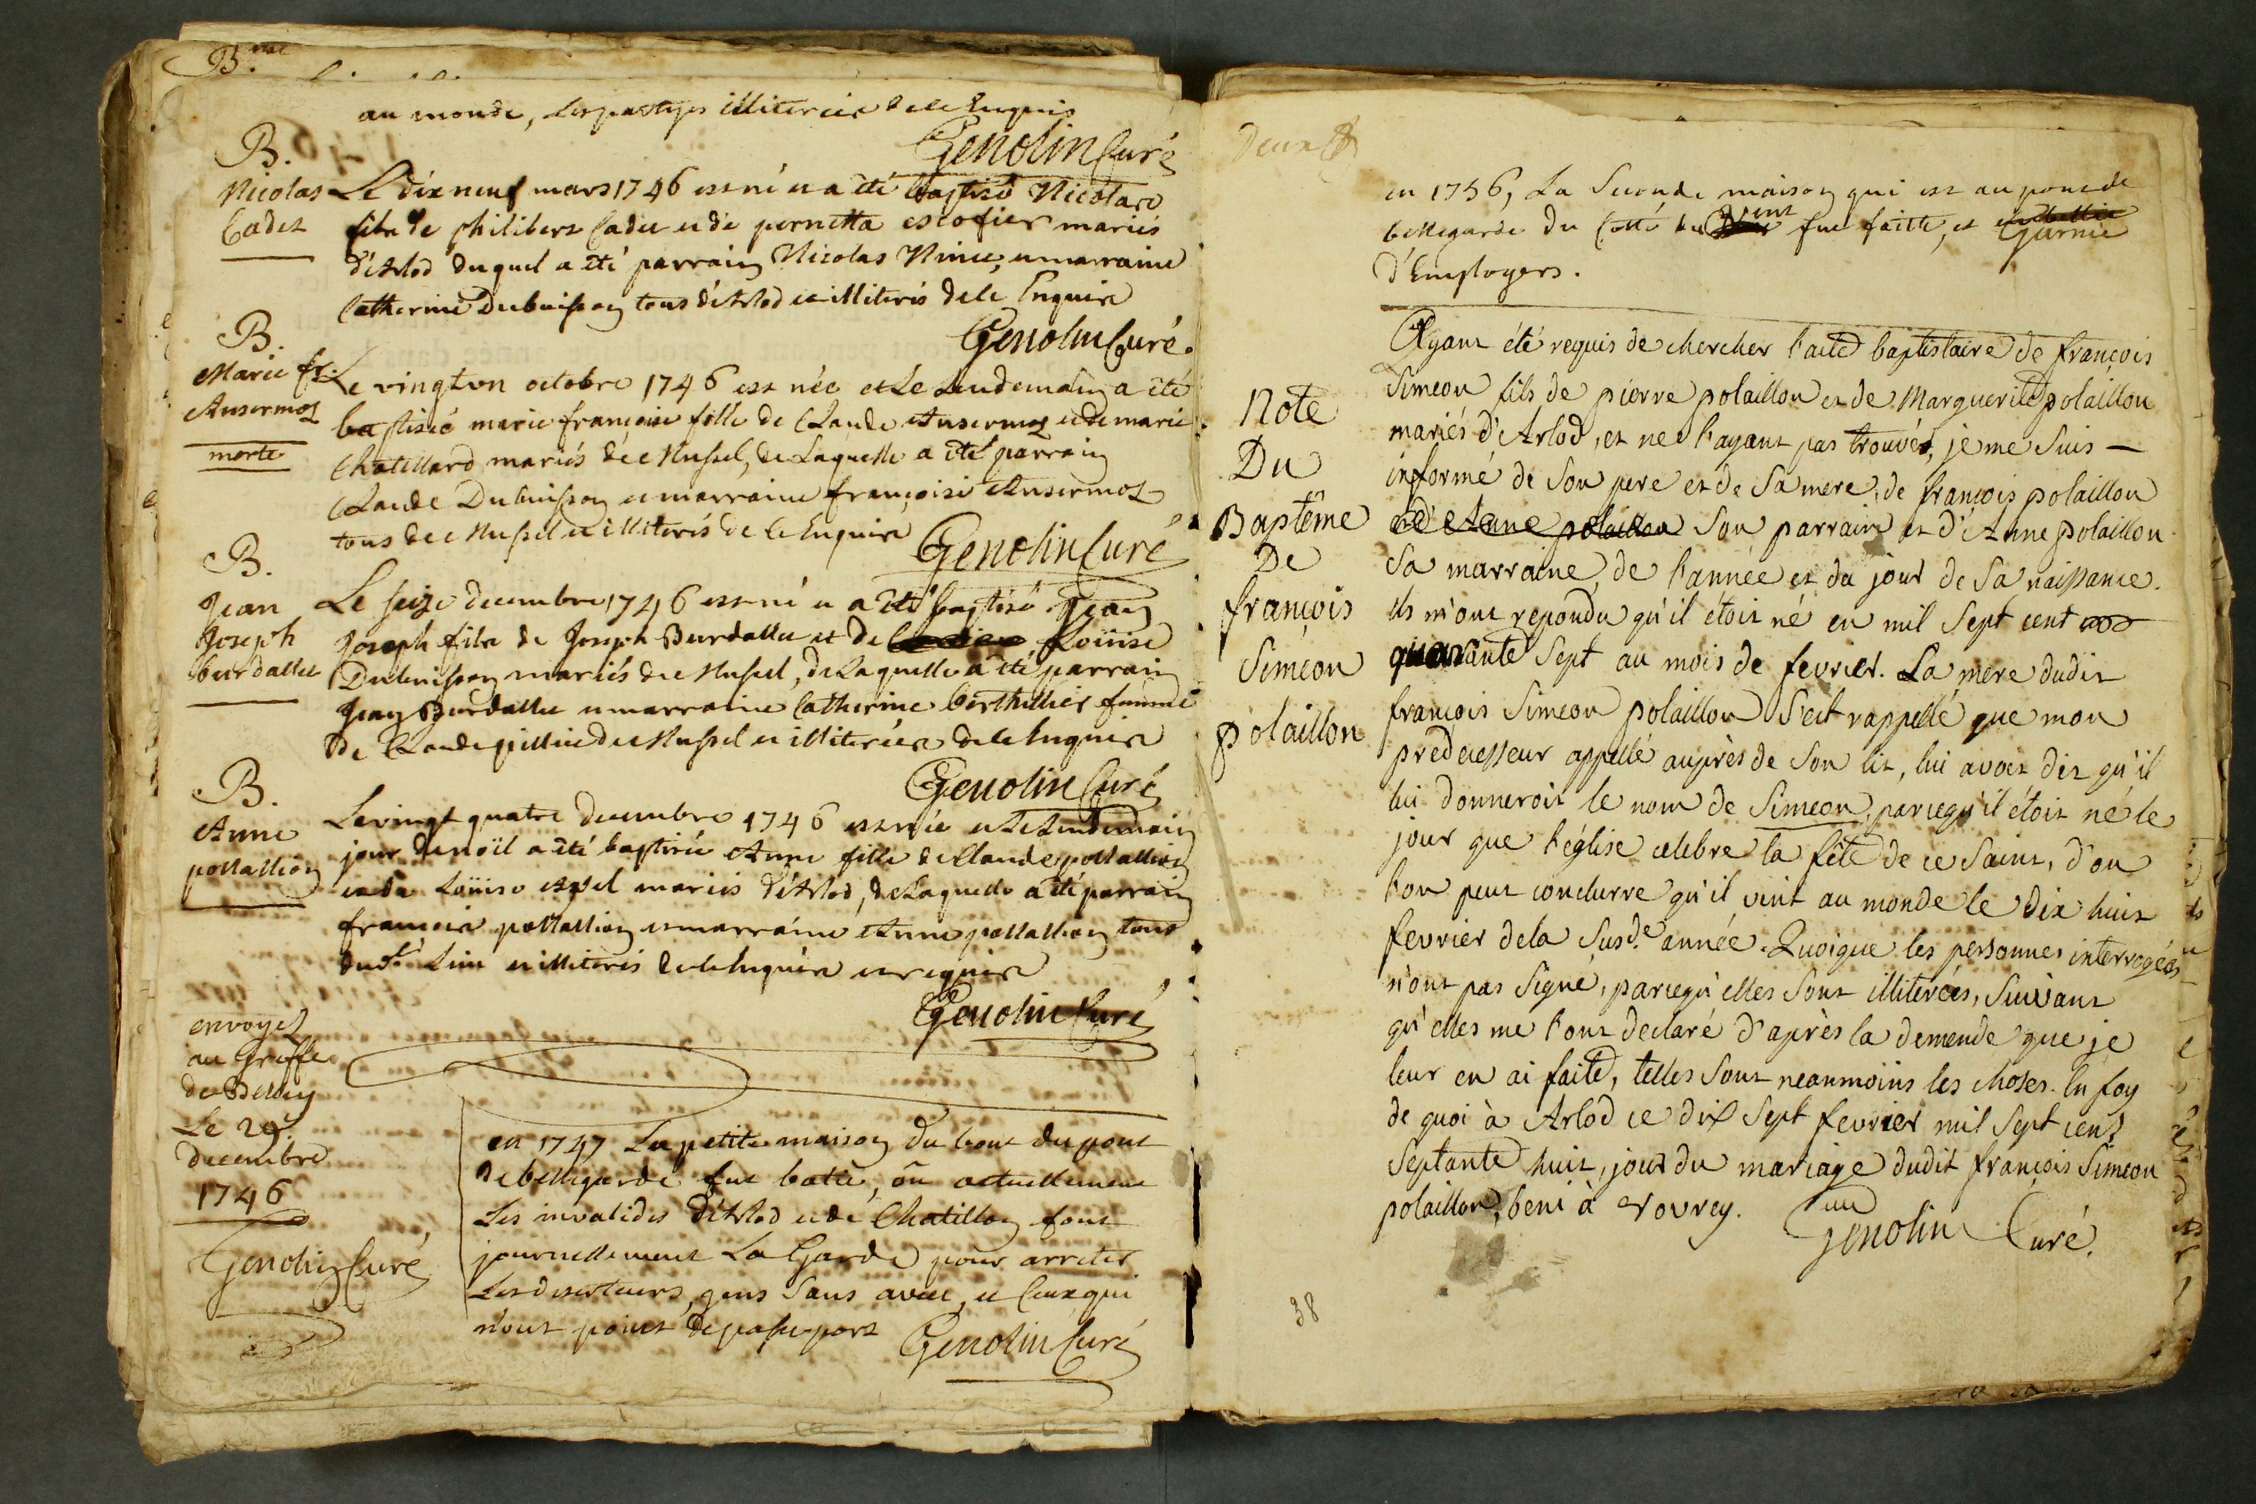 B.
au monde, les parties illiterées de ce enquis
Genolin Curé
B.
Nicolas
Cadet
Le dix neuf mars 1746 est né et a été baptisé Nicolas
fils de philibert Cadet et de pernetta escofier mariés
d'Arlod duquel a été parrain Nicolas Ninet, et marraine
Catherine Dubuisson tous d'Arlod et illiterés de ce Enquis
Genolin Curé.
B.
Marie fr.
Ansermoz
morte
Le vingt un octobre 1746 est née et Le Lendemain a été
baptisée marie françoise fille de Claude Ansermoz et de marie
Chatillard mariés de Mussel, de Laquelle a été parrain
Claude Dubuisson et marraine françoise Ansermoz
tous de Mussel et illiterés de ce Enquis
Genolin Curé
B.
Jean
Joseph
burdallet
Le seize decembre 1746 est né et a été baptisé Jean
Joseph fils de Joseph Burdallet et de Loüise
Dubuisson mariés de Mussel, de Laquelle a été parrain
Jean Burdallet et marraine Catherine berthillier femme
de Claude de Mussel et illiterées de ce Enquis
Genolin Curé
B.
Anne
pollallion
Le vingt quatre decembre 1746 est née et Le Lendemain
jour de noïl a été baptisée Anne fille de Claude pollallion
et de Loüise mariés d'Arlod, de Laquelle a été parrain
francois pollallion et marraine Anne pollallion tous
dud. Lieu et illiterés de ce Enquis et requis
Genolin Curé
envoyez
au Greffe
de Belley
Le 29.
decembre
1746
Genolin Curé
en 1747 La petite maison du bout du pont
de bellegarde fut batie, où actuellement
Les invalides d'Arlod et de Chatillon font
journellement La Garde pour arreter
Les deserteurs, gens sans aveu, et Ceux qui
n'ont point de passe-port
Genolin Curé
en 1756, La Seconde maison qui est au pont de
bellegarde du Cotté du vent fut faitte, et Garnie
d'Employers.
Note
Du
Baptême
De
françois
Simeon
polaillon
Ayant été requis de chercher l'acte baptistaire de françois
Simeon fils de pierre polaillon et de Marguerite polaillon
mariés d'Arlod, et ne l'ayant pas trouvé, je me suis –
informé de son pere et de sa mere, de françois polaillon
et d'Anne polaillon son parrain et d'Anne polaillon
sa marraine, de l'année et du jour de sa naissance.
ils m'ont repondu qu'il étoit né en mil sept cent
quarante sept au mois de fevrier. La mere dudit
françois Simeon polaillon s'est rappellé que mon
predecesseur appellé auprès de son lit, lui avoit dit qu'il
lui donneroit le nom de Simeon, parcequ'il étoit né le
jour que l'église celebre la fête de ce Saint, d'ou
l'on peut conclurre qu'il vint au monde le dix huit
fevrier de la susd.e année. Quoique les personnes interrogées
n'ont pas signé, parcequ'elles sont illiterées, suivant
qu'elles me l'ont declaré d'après la demende que je
leur en ai faite, telles sont neanmoins les choses. En foy
de quoi à Arlod ce dix sept fevrier mil sept cent
septante huit, jour du mariage dudit françois Simeon
polaillon, beni à vovrey.
Genolin Curé.
38